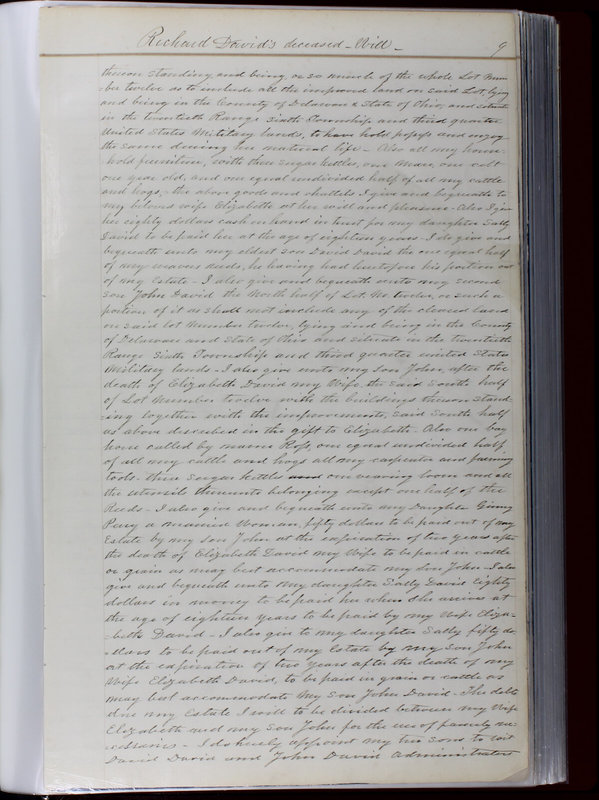 Richard David's deceased - Will - 9
thereon standing and being or so much of the whole Lot Num
=ber twelve as to include all the improved land on said Lot, lying
and being in the County of Delaware & State of Ohio, and situate
in the twentieth Range Sixth Township and third quarter
United States Military lands, to have hold possess and enjoy
the same during her natural life - Also all my house-
hold furniture, with three sugar kettles, one Mare, one colt
one year old, and one equal undivided half of all my cattle
and hogs, - the above goods and chattels I give and bequeath to
my beloved wife Elizabeth at her will and pleasure - Also I give
her eighty dollars cash in hand in trust for my daughter Sally
David to be paid her at the age of eighteen years - I do give and
bequeath unto my eldest Son David David the one equal half
of my weaver Reeds, he having had heretofore his portion out
of my Estate - I also give and bequeath unto my second
Son John David the North half of Lot No. twelve, or such a
portion of it as shall not include any of the cleared land
on said lot Number twelve, lying and being in the County
of Delaware and State of Ohio and situate in the twentieth
Range Sixth Township and third quarter united States
Military lands - I also give unto my son John, after the
death of Elizabeth David my Wife, the said South half
of Lot Number twelve with the buildings thereon Stand-
ing together with the improvements, said South half
as above described in the gift to Elizabeth - Also one bay
horse called by name Ross, one equal undivided half,
of all my cattle and hogs all my carpenter and farming
tools - three sugar kettles and one weaving loom and all
the utensils thereunto belonging except one half of the
Reeds - I also give and bequeath unto my Daughter Ginny
Perry a married Woman, fifty dollars to be paid out of my
Estate by my son John at the expiration of two years after
the death of Elizabeth David my Wife to be paid in cattle
or grain as may best accommodate my son John - I also
give and bequeath unto my daughter Sally David Eighty
dollars in money to be paid her when she arrives at
the age of eighteen years to be paid by my Wife Eliza-
=beth David - I also give to my daughter Sally fifty do
=llars to be paid out of my Estate by my son John
at the expiration of two years after the death of my
Wife Elizabeth David, to be paid in grain or cattle as
may best accommodate my Son John David - The debts
due my Estate I will to be divided between my Wife
Elizabeth and my son John for the use of family ne
=cessaries - I do hereby appoint my two sons to wit
David David and John David administrators